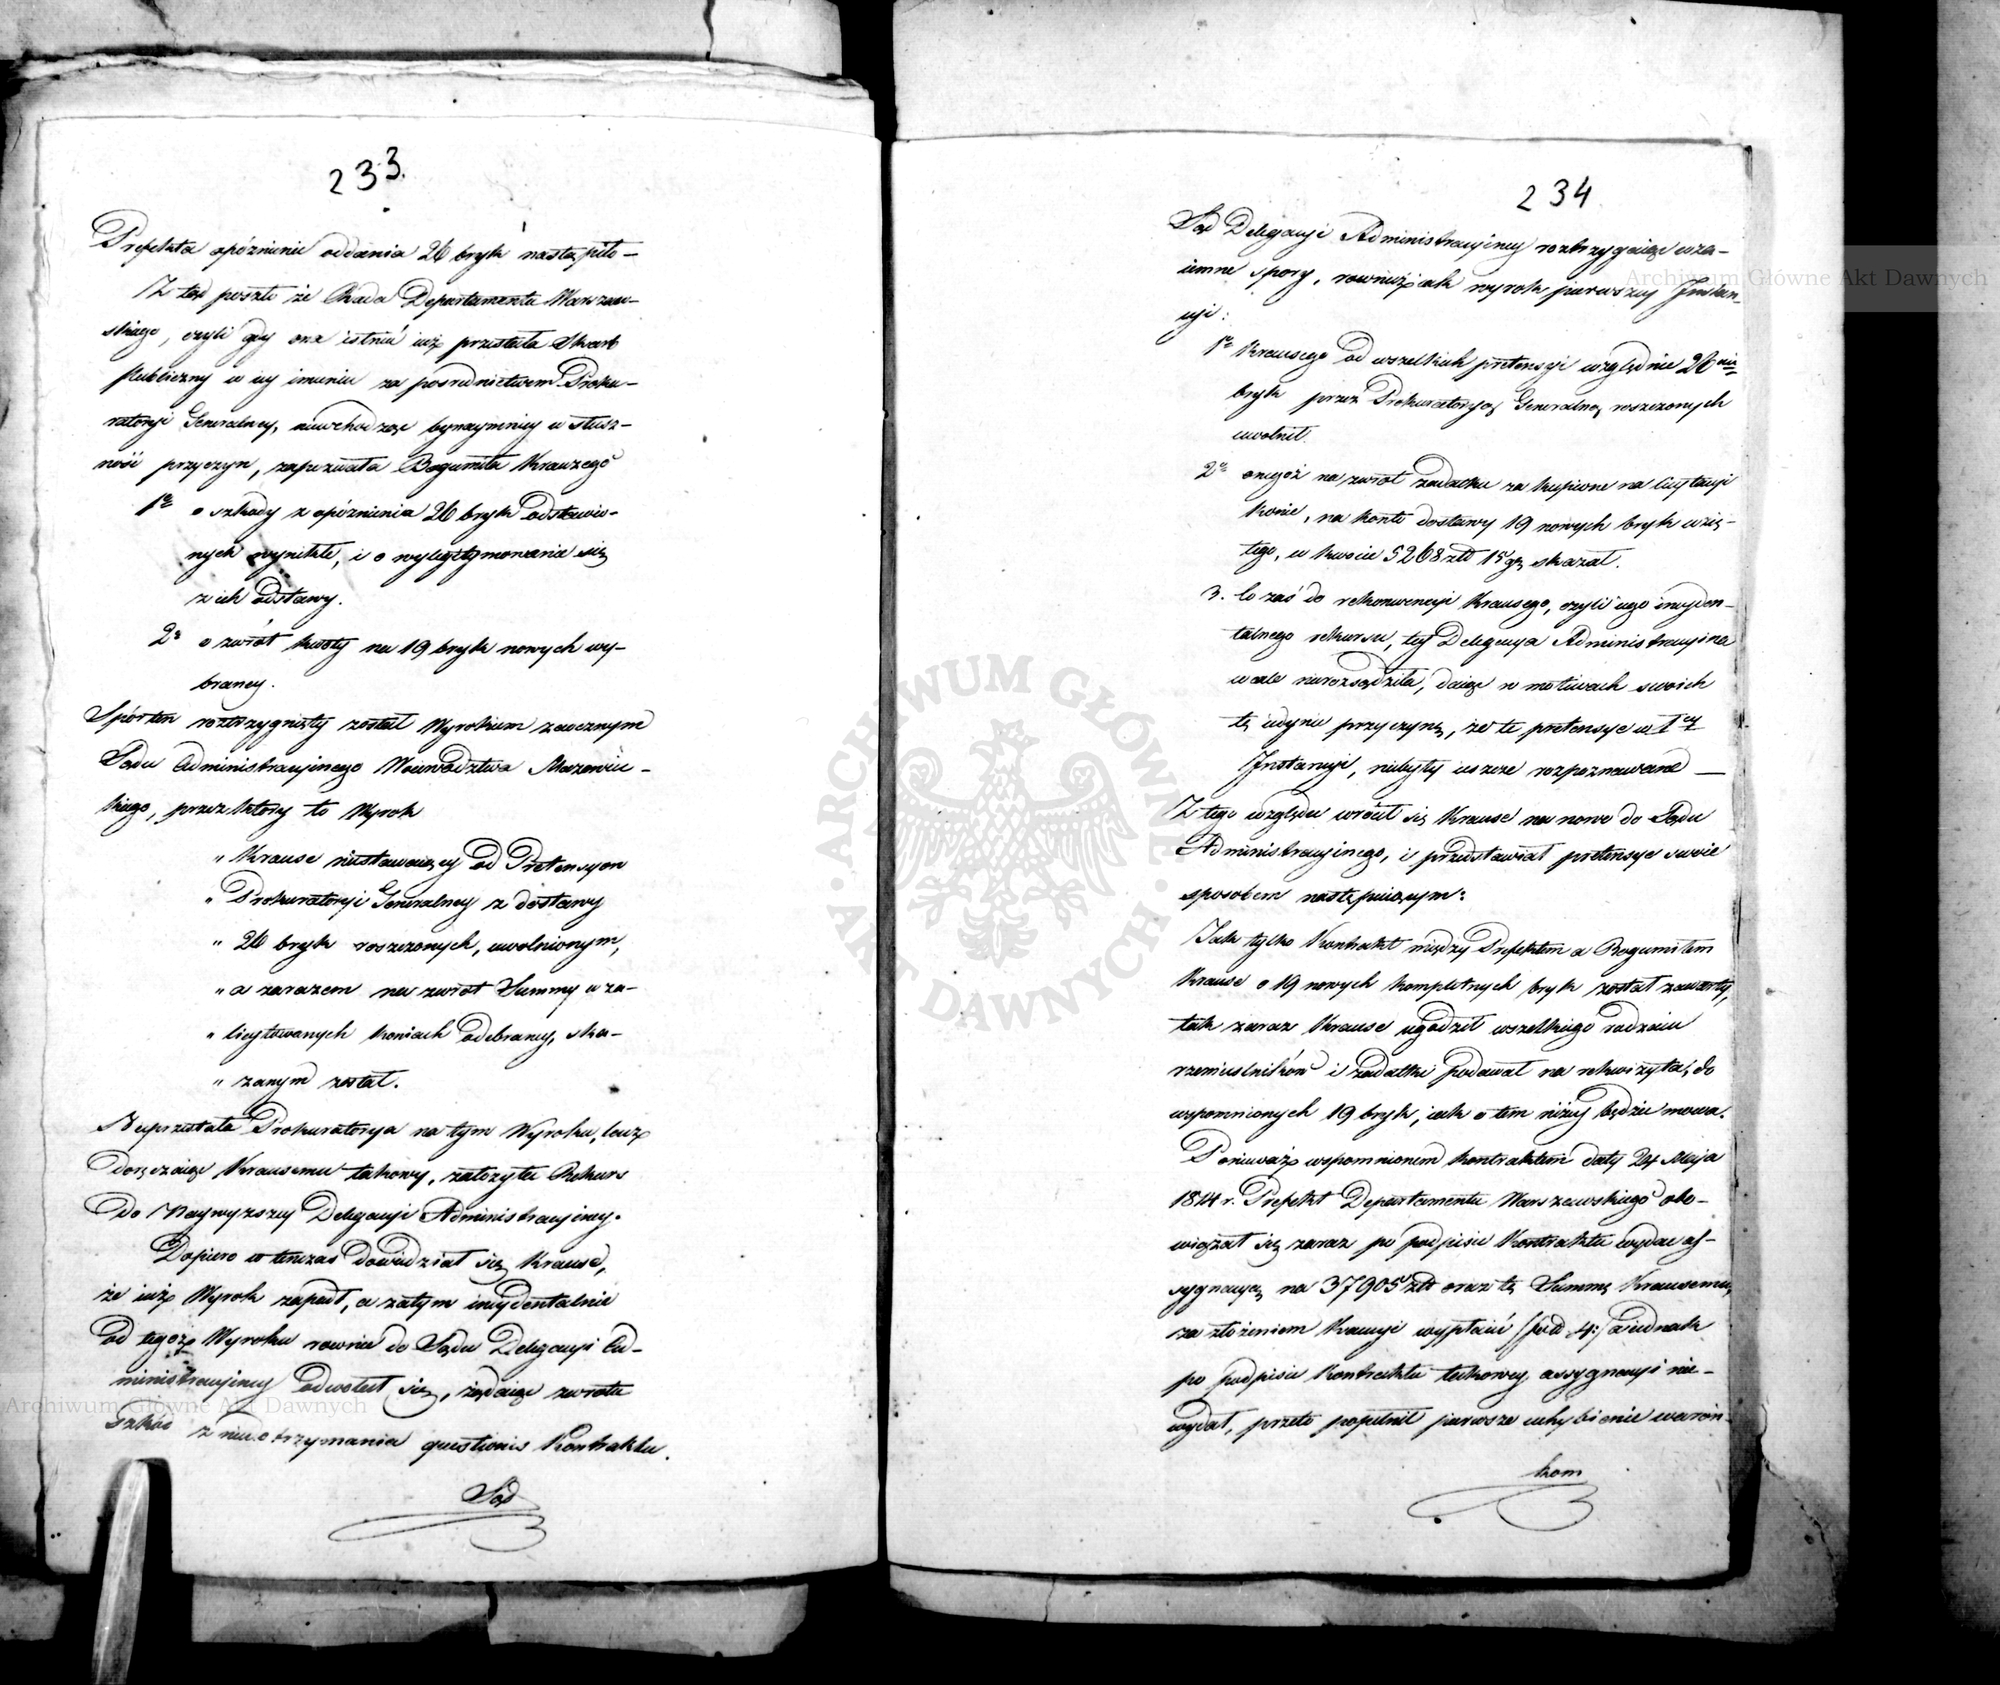 233.
Prefekta opóznienie oddania 26 bryk nastąpiło –
Z tąd poszło że Rada Departamentu Warszaw-
skiego, czyli gdy ona istnieć iuż przestała Skarb
Publiczny w iey imieniu za posrednictwem Proku-
ratoryi Generalney, niewchodząc bynaymniey w słusz-
ność przyczyn, zapozwała Bogumiła Krauzego
1º o szkody z opóznienia 26 bryk odstawio-
nych wynikłe, i o wylegitymowanie się
z ich odstawy.
2º o zwrót kwoty na 19 bryk nowych wy-
braney.
Spór ten roztrzygnięty został Wyrokiem zaocznym
Sądu Administracyinego Woiewództwa Mazowiec-
kiego, przez który to Wyrok
„ Krause niestawaiący od Pretensyow
„ Prokuratoryi Generalney z dostawy
„ 26 bryk roszczonych, uwolnionym,
„ a zarazem na zwrot Summy w za-
„ licytowanych koniach odebraney, ska-
„ zanym został.
Nieprzestała Prokuratorya na tym Wyroku, lecz
doręczaiąc Krausemu takowy, założyła Rekurs
do Naywyższey Delegacyi Administracyiney.
Dopiero w tenczas dowiedział się Krause,
że iuż Wyrok zapadł, a zatym incydentalnie
od tegoż Wyroku rownie do Sądu Delegacyi Ad-
ministracyiney odwołał się, żądaiąc zwrotu
szkód z niedotrzymania questionis Kontraktu.
Sąd
234
Sąd Delegacyi Administracyiney roztrzygaiąc wza-
iemne spory, rownież iak wyrok pierwszey Instan-
cyi:
1º Krausego od wszelkich pretensyi względnie 26ciu
bryk przez Prokuratoryą Generalną roszczonych
uwolnił.
2º onegoż na zwrot zadatku za kupione na licytacyi
konie, na konto dostawy 19 nowych bryk wzię-
tego, w kwocie 5268 złł 15 gr skazał.
3. Co zaś do rekonwencyi Krausego, czyli iego incyden-
talnego rekursu, tey Delegacya Administracyina
wcale nierozsądziła, daiąc w motiwach swoich
tę iedynie przyczynę, że te pretensye w 1ey
Instancyi, niebyły ieszcze rozpoznawane —
Z tego względu wrócił się Krause na nowo do Sądu
Administracyinego, i przedstawiał pretensye swoie
sposobem następuiącym:
Jak tylko Kontrakt między Prefektem a Bogumiłem
Krause o 19 nowych kompletnych bryk został zawarty,
tak zaraz Krause ugodził wszelkiego rodzaiu
rzemieslników i zadatki podawał na rekwizyta, do
wspomnionych 19 bryk, iak o tem niżey będzie mowa.
Ponieważ wspomnionem kontraktem daty 24 Maja
1814 r. Prefekt Departamentu Warszawskiego obo-
wiązał się zaraz po podpisie Kontraktu wydać as-
sygnacyą na 37905 złł oraz tę Summę Krausemu,
za złożeniem Kaucyi wypłacić /: pod 4 :/ a iednak
po podpisie Kontraktu takowey assygnacyi nie-
wydał, przeto popełnił pierwsze uchybienie warun-
kom
ARCHIWUM GŁÓWNE AKT DAWNYCH
Archiwum Główne Akt Dawnych
Archiwum Główne Akt Dawnych